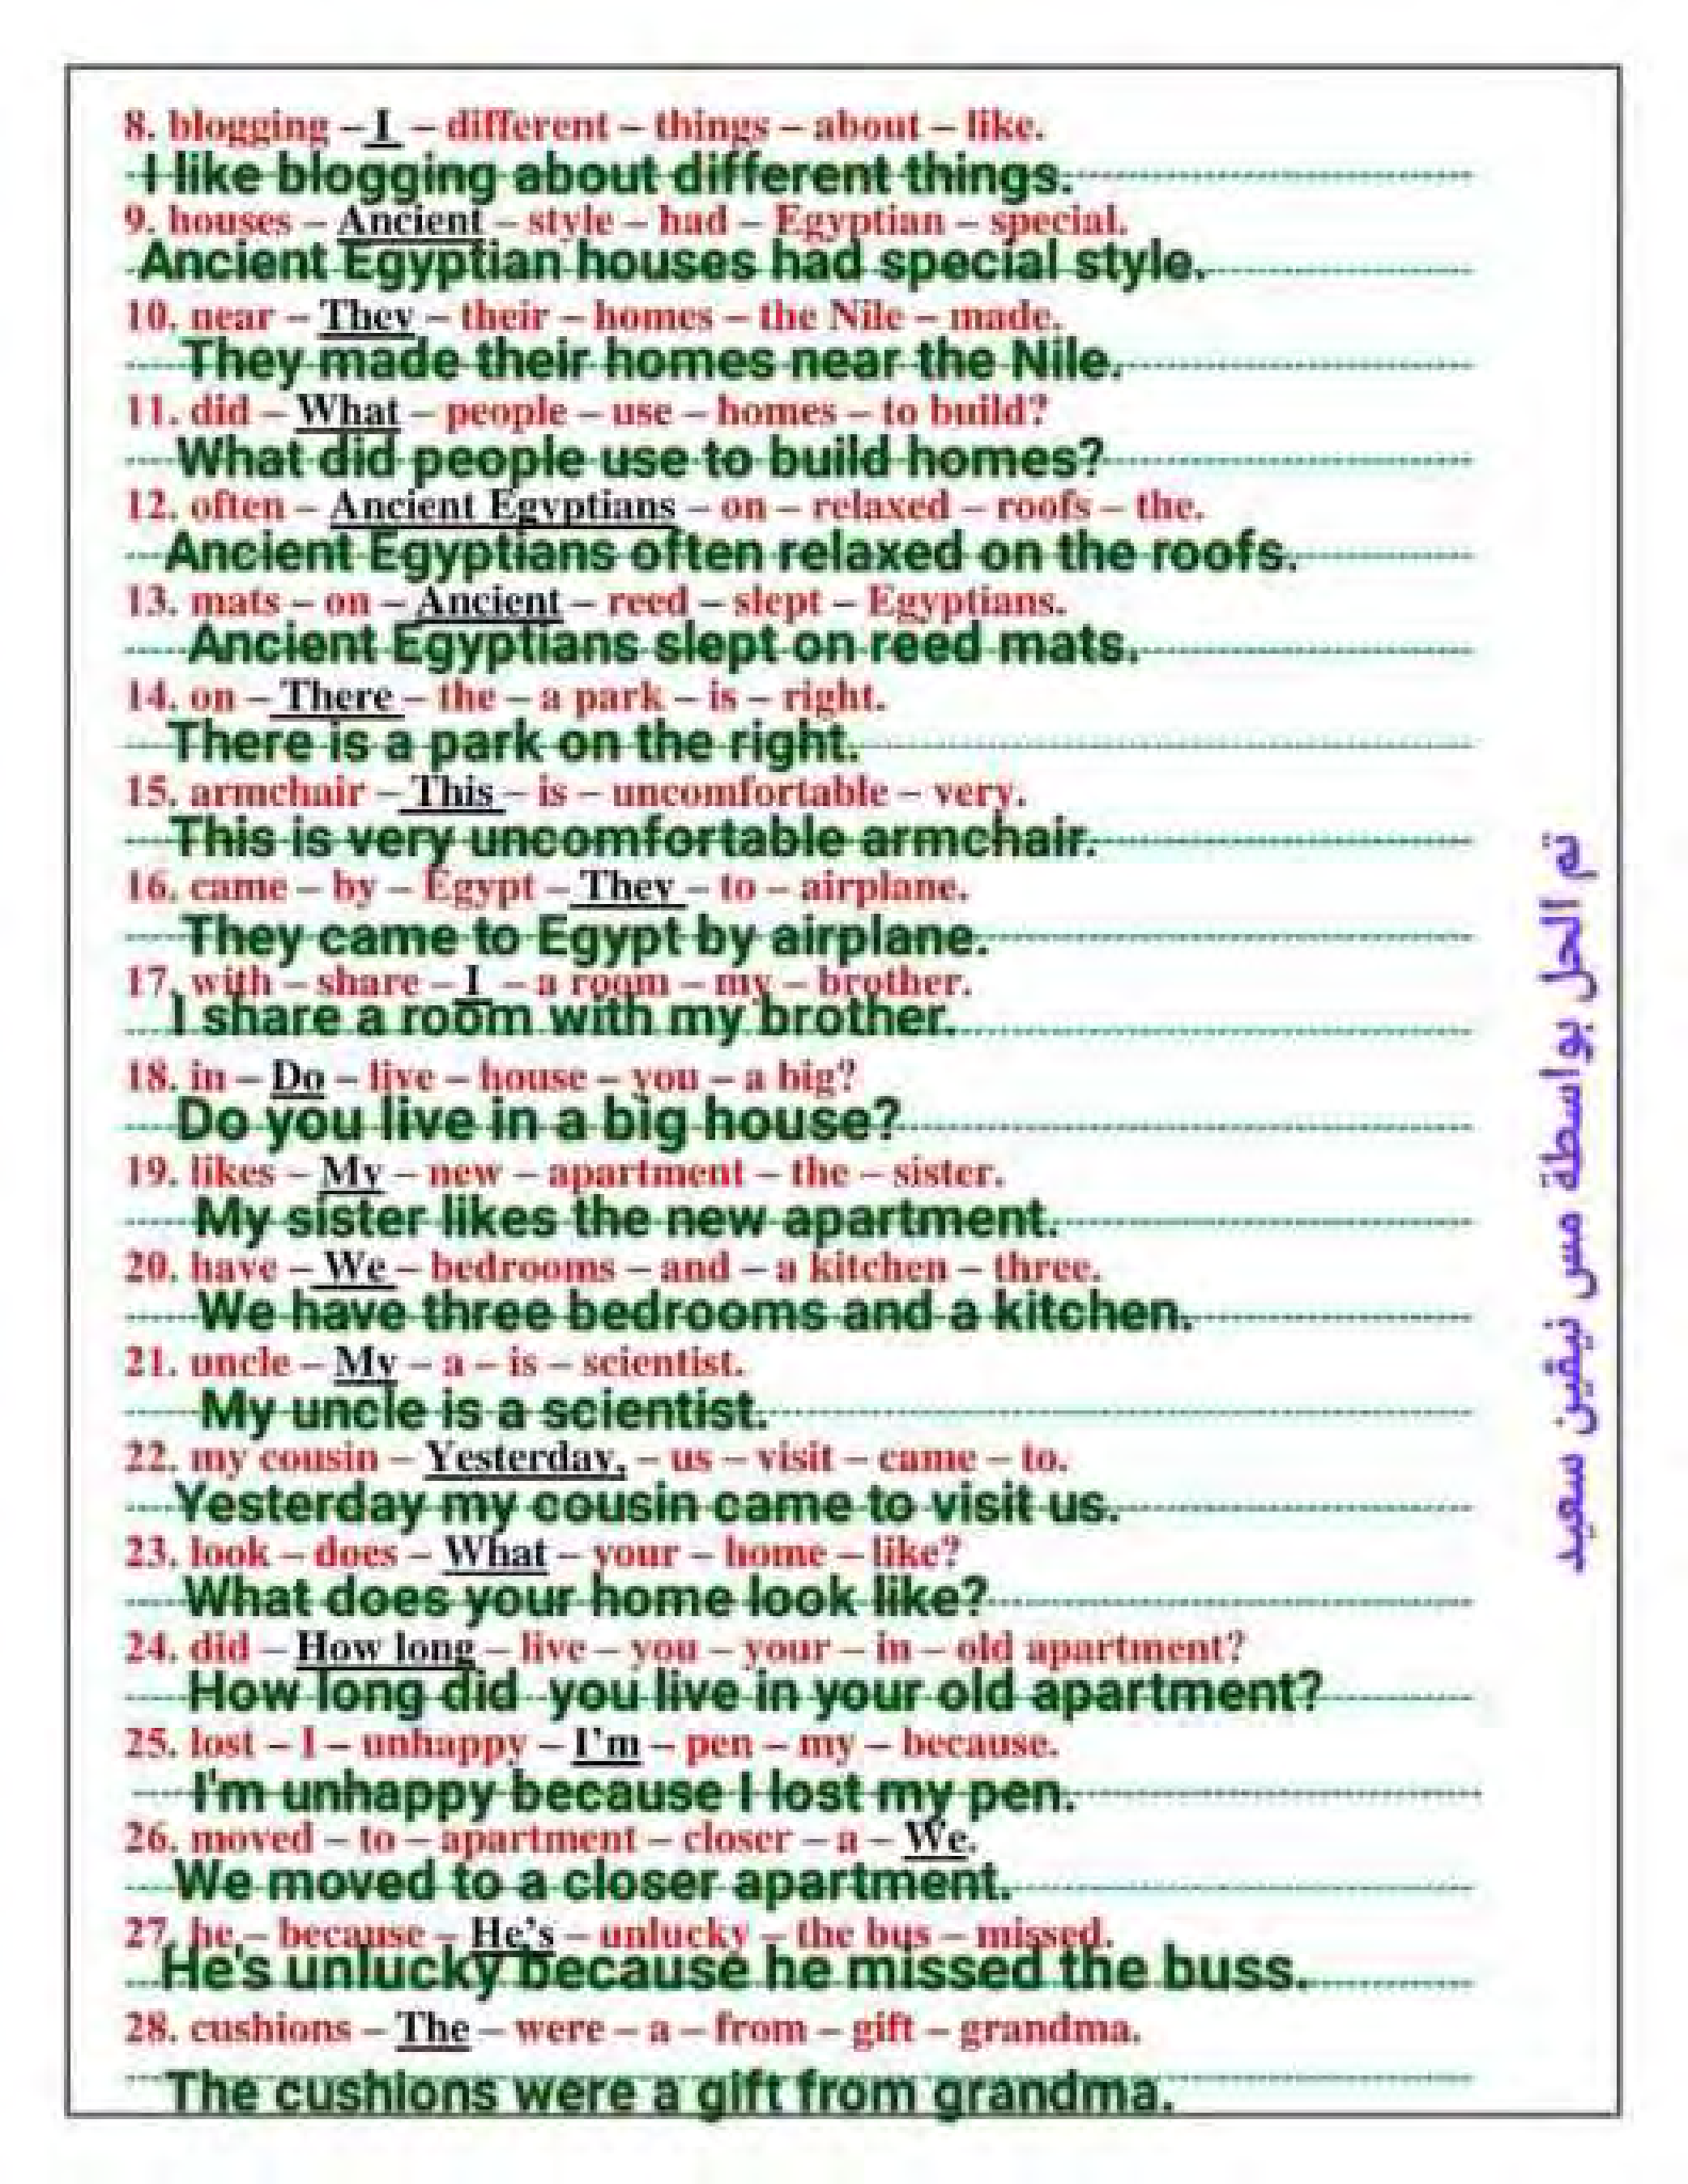 8. blogging – I – different – things – about – like.
I like blogging about different things.
9. houses – Ancient – style – had – Egyptian – special.
Ancient Egyptian houses had special style.
10. near – They – their – homes – the Nile – made.
They made their homes near the Nile.
11. did – What – people – use – homes – to build?
What did people use to build homes?
12. often – Ancient Egyptians – on – relaxed – roofs – the.
Ancient Egyptians often relaxed on the roofs.
13. mats – on – Ancient – reed – slept – Egyptians.
Ancient Egyptians slept on reed mats.
14. on – There – the – a park – is – right.
There is a park on the right.
15. armchair – This – is – uncomfortable – very.
This is very uncomfortable armchair.
16. came – by – Egypt – They – to – airplane.
They came to Egypt by airplane.
17. with – share – I – a room – my – brother.
I share a room with my brother.
18. in – Do – live – house – you – a big?
Do you live in a big house?
19. likes – My – new – apartment – the – sister.
My sister likes the new apartment.
20. have – We – bedrooms – and – a kitchen – three.
We have three bedrooms and a kitchen.
21. uncle – My – a – is – scientist.
My uncle is a scientist.
22. my cousin – Yesterday, – us – visit – came – to.
Yesterday my cousin came to visit us.
23. look – does – What – your – home – like?
What does your home look like?
24. did – How long – live – you – your – in – old apartment?
How long did you live in your old apartment?
25. lost – I – unhappy – I'm – pen – my – because.
I'm unhappy because I lost my pen.
26. moved – to – apartment – closer – a – We.
We moved to a closer apartment.
27. he – because – He's – unlucky – the bus – missed.
He's unlucky because he missed the buss.
28. cushions – The – were – a – from – gift – grandma.
The cushions were a gift from grandma.
تم الحل بواسطة مس نيڤين سعيد